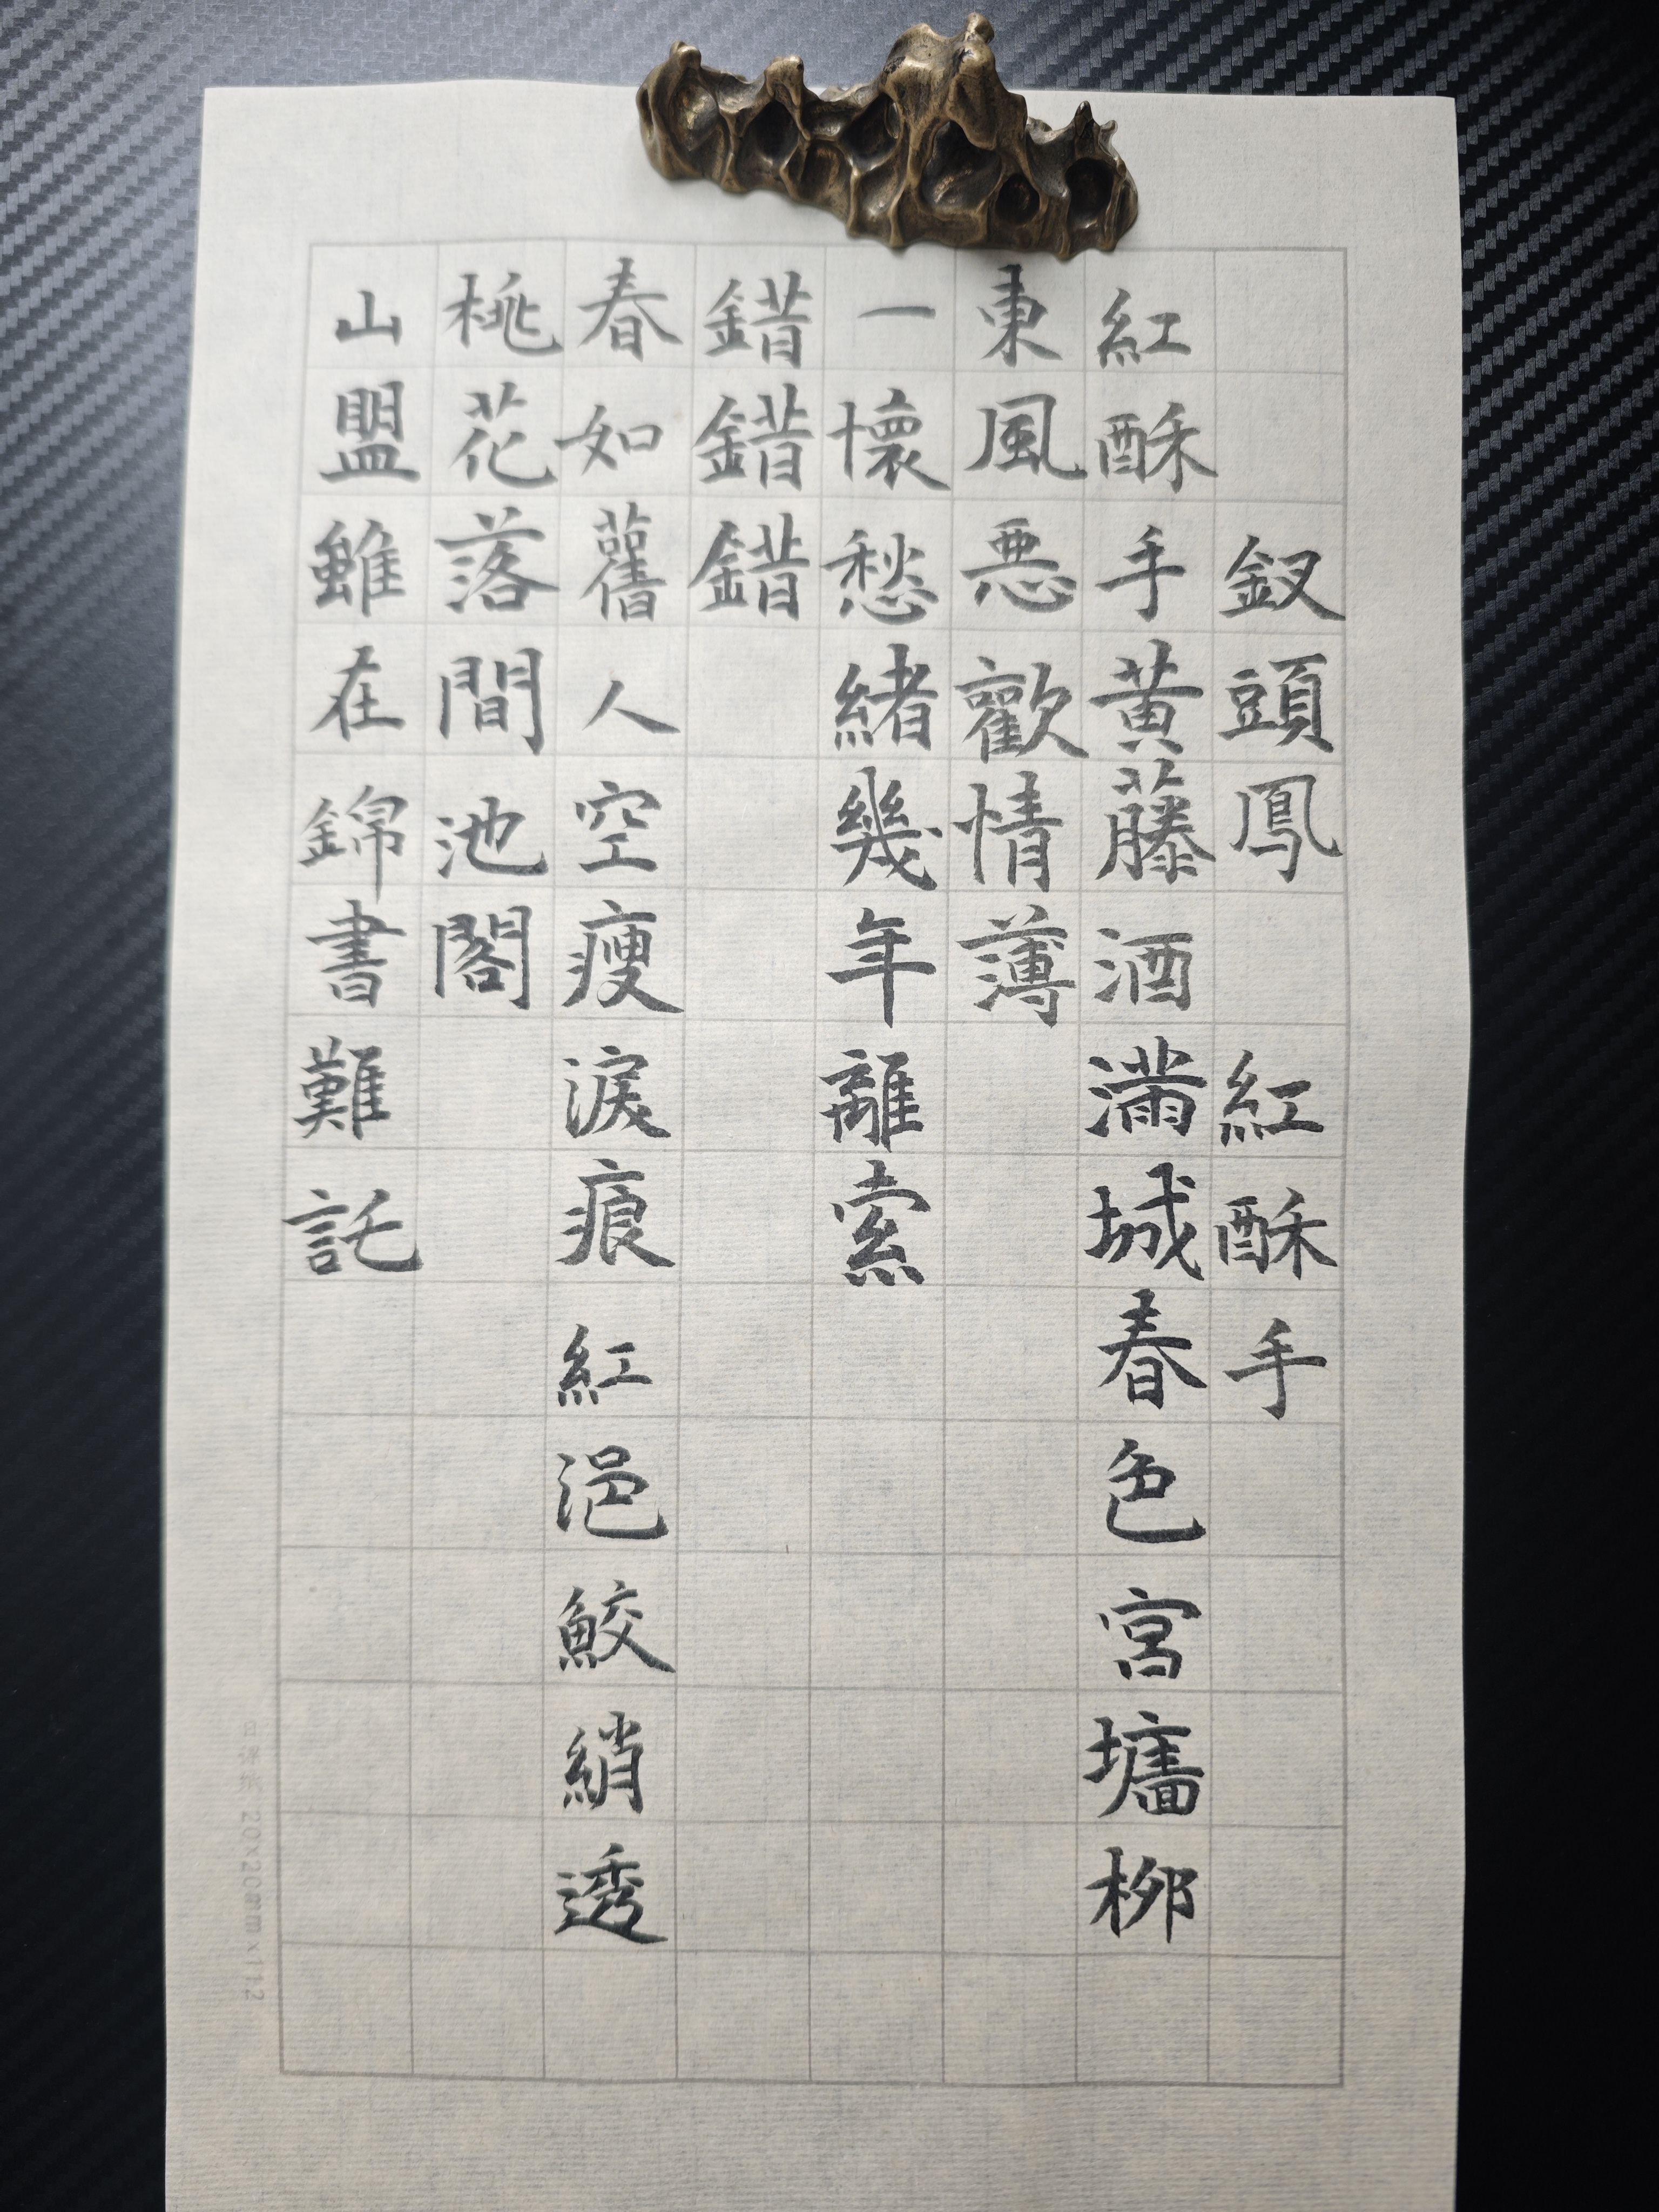 釵頭鳳 紅酥手
紅酥手黃藤酒滿城春色宮墻柳
東風惡歡情薄
一懷愁緒幾年離索
錯錯錯
春如舊人空瘦淚痕紅浥鮫綃透
桃花落間池閣
山盟雖在錦書難託
20x20mmx112